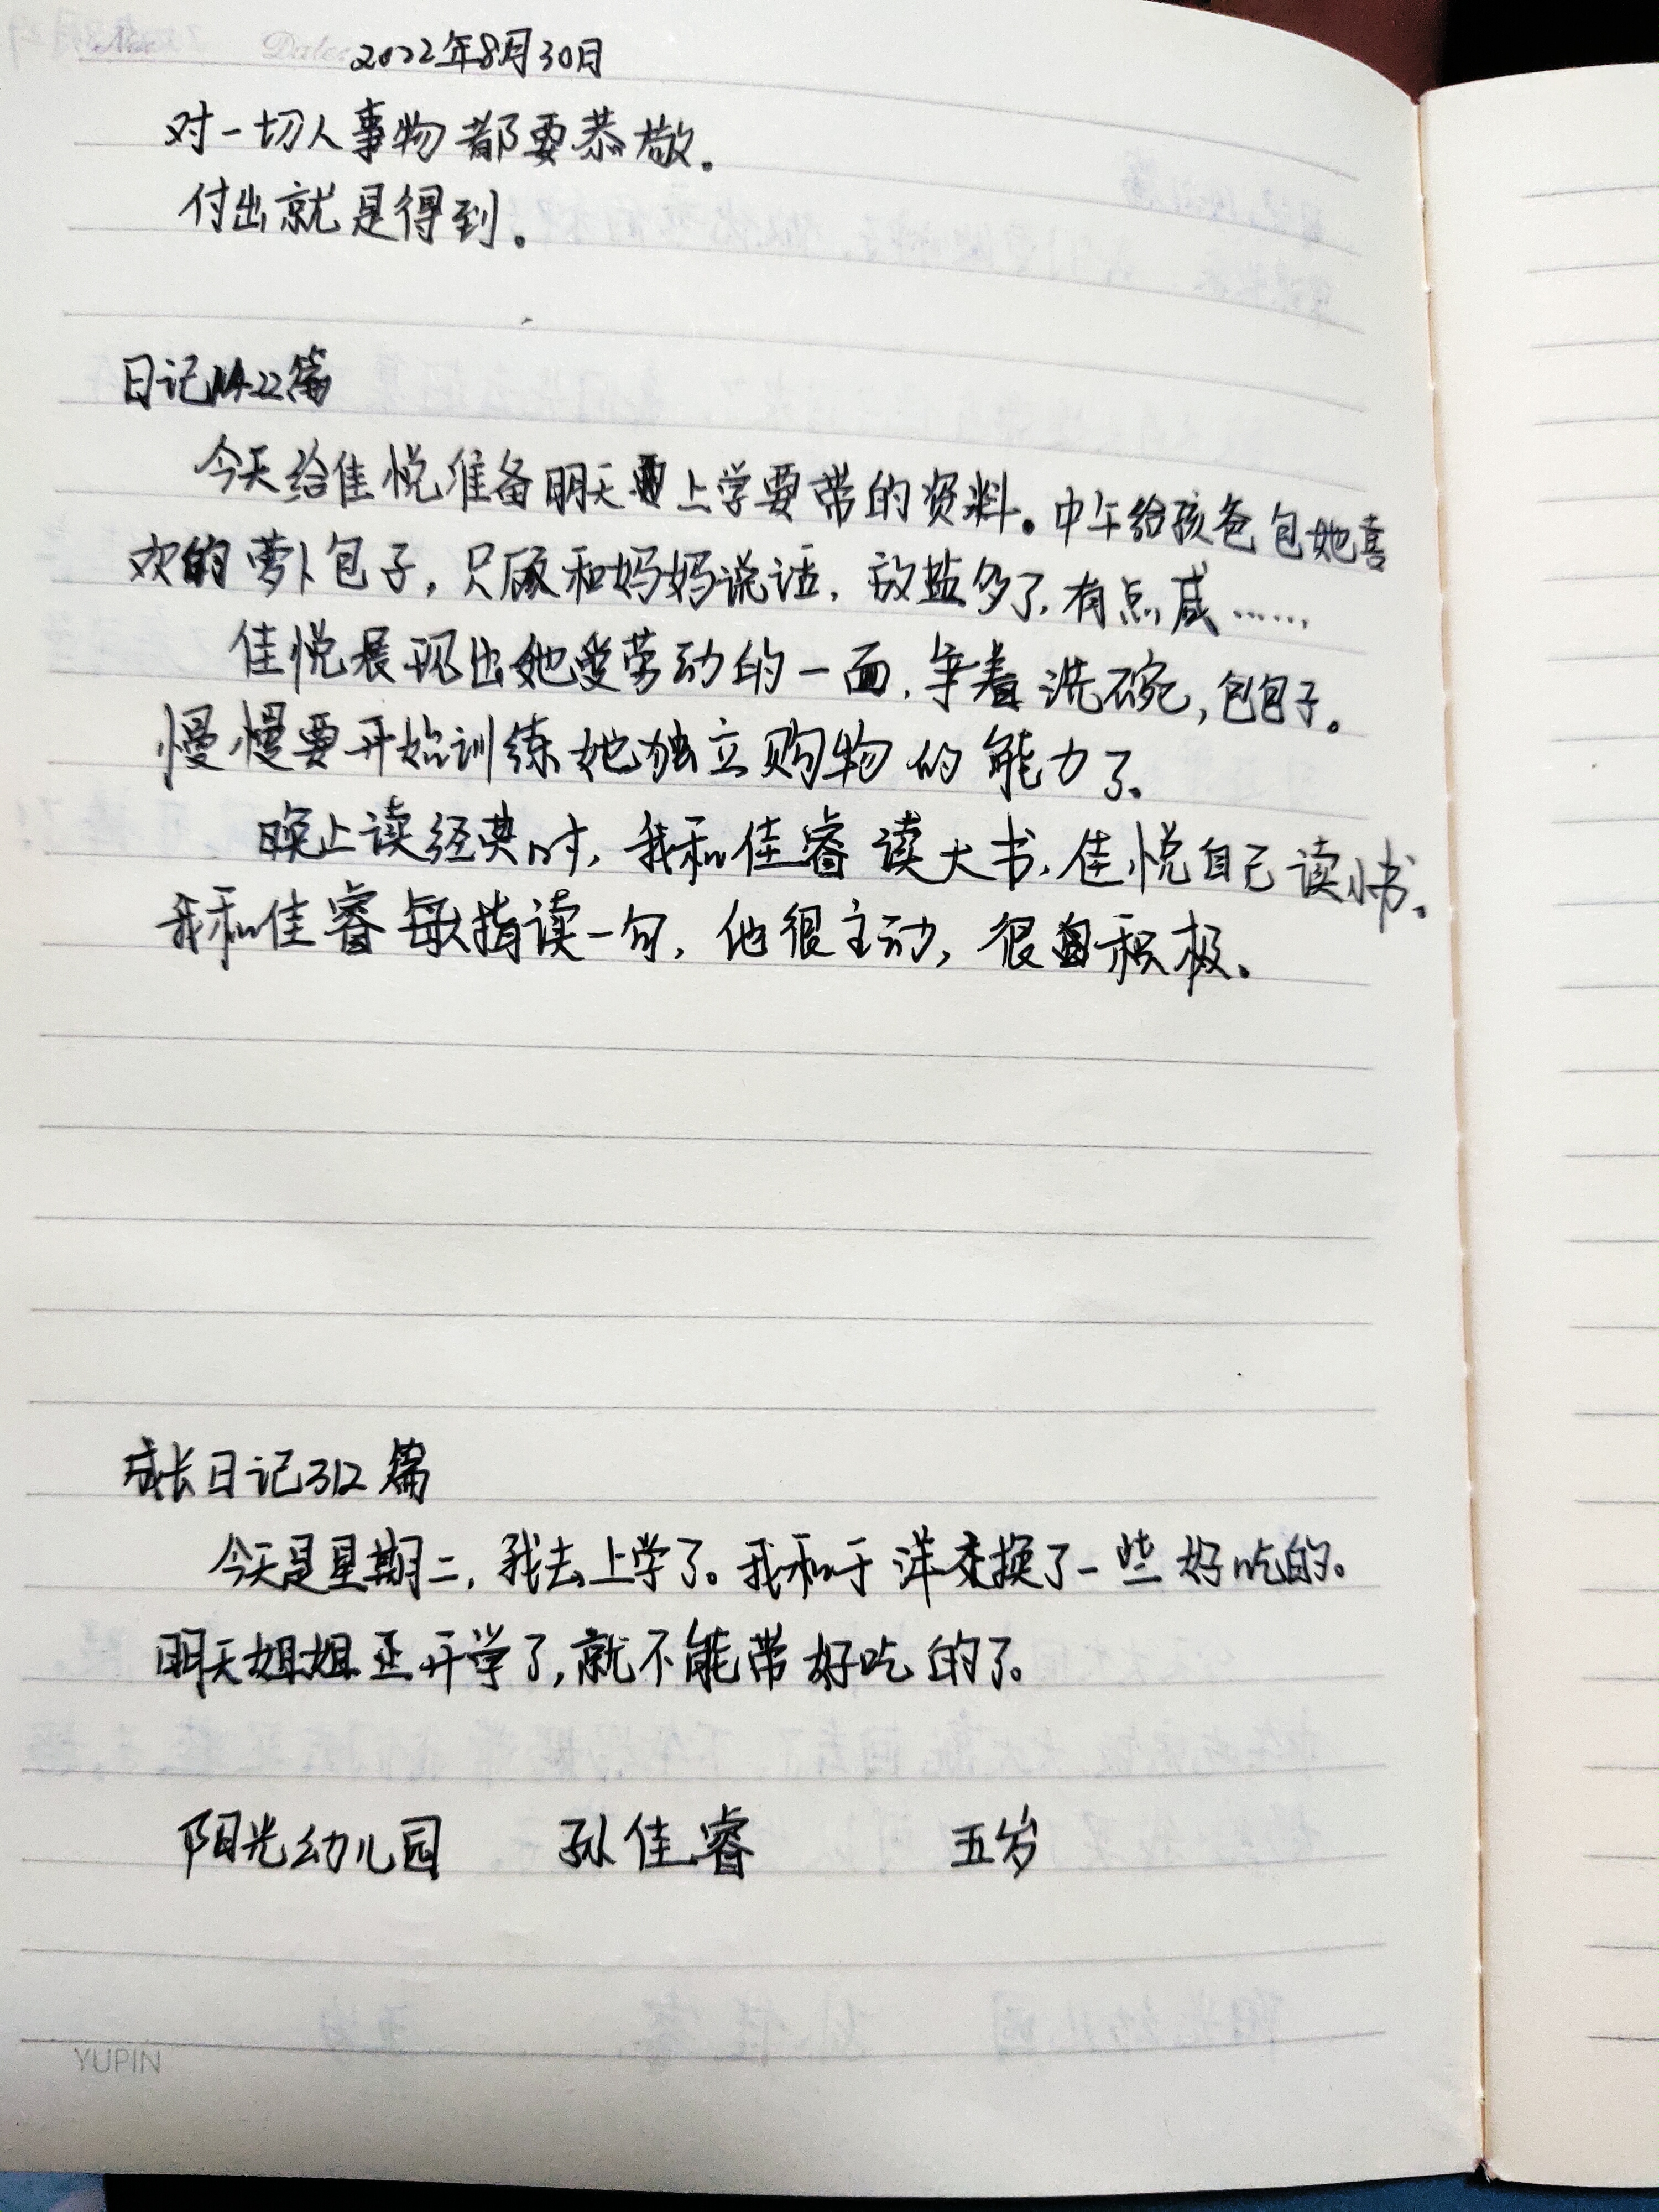 Date: 2022年8月30日
对一切人事物都要恭敬。
付出就是得到。
日记1422篇
今天给佳悦准备明天要上学要带的资料。中午给孩爸包她喜
欢的萝卜包子,只顾和妈妈说话,放盐多了,有点咸……
佳悦展现出她爱劳动的一面,争着洗碗,包包子。
慢慢要开始训练她独立购物的能力了。
晚上读经典时,我和佳睿读大书,佳悦自己读小书。
我和佳睿每人指读一句,他很主动,很积极。
成长日记312篇
今天是星期二,我去上学了。我和于洋交换了一些好吃的。
明天姐姐正开学了,就不能带好吃的了。
阳光幼儿园 孙佳睿 五岁
YUPIN